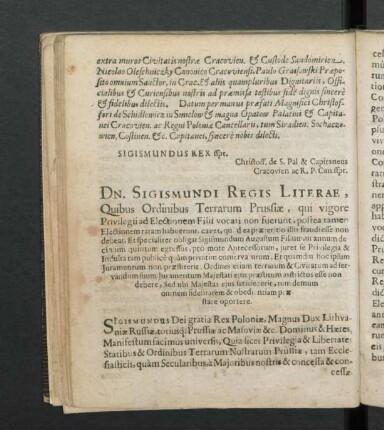 extra muros Civitatis nostræ Cracovien. & Custode Sandomirien.
Nicolao Oleschniczky Canonico Cracoviensi, Paulo Præpo-
sito omnium Sanctor. in Crac. & aliis quampluribus Dignitarii, Offi-
cialibus & Curiensibus nostris ad præmissa testibus fide dignis sincerè
& fidelibus dilectis. Datum per manus præfati Magnifici Christof-
fori de Schidlowiecz in Smolow & magna Opatow Palatini & Capita-
nei Cracovien. ac Regni Poloniæ Cancellarii, tum Siradien. Sochacze-
wien. Gostinen. &c. Capitanei, sincerè nobis dilecti.
SIGISMUNDUS REX sspt.
Christoff. de S. Pal & Capitaneus
Cracovien ac R. P. Can. sspt.
DN. SIGISMUNDI REGIS LITERAE,
Quibus Ordinibus Terrarum Prussiæ, qui vigore
Privilegii ad Electionem Filii vocati non fuerint, postea tamen
Electionem ratam habuerint, cavet, quòd ea præteritio illis fraudi esse non
debeat. Et specialiter obligat Sigismundum Augustum Filium vti annum de-
cimum quintum egressus, pro more Antecessorum, juret se Privilegia &
Indulta tam publicè quàm privatim conservaturum. Et quamdiu hocipsum
Juramentum non præstiterit, Ordines etiam terrarum & Civitatum ad ser-
vandum suum Juramentum Majestati ejus præstitum astrictos esse non
debere, Sed ubi Majestas ejus satisfecerit, tum demum
omnem fidelitatem & obedientiam præ
stare oportere.
SIGISMUNDUS Dei gratia Rex Poloniæ, Magnus Dux Lithva-
niæ Russiæ, totiusq; Prussiæ ac Masoviæ &c. Dominus & Hæres,
Manifestum facimus universis, Quia licet Privilegia & Libertates
Statibus & Ordinibus Terrarum Nostrarum Prussiæ, tam Eccle-
siasticis, quàm Secularibus, à Majoribus nostris & concessa & con-
cessæ